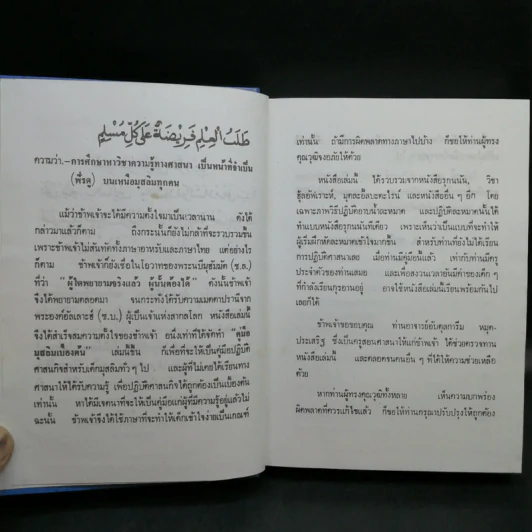 طَلَبُ الْعِلْمِ فَرِيْضَةٌ عَلَى كُلِّ مُسْلِمٍ
ความว่า.-การศึกษาหาวิชาความรู้ทางศาสนา เป็นหน้าที่จำเป็น
(ฟัรดู) บนเหนือมุสลิมทุกคน
แม้ว่าข้าพเจ้าจะได้มีความตั้งใจมาเป็นเวลานาน ดังได้
กล่าวมาแล้วก็ตาม ถึงกระนั้นก็ยังไม่กล้าที่จะรวบรวมขึ้น
เพราะข้าพเจ้าไม่สันทัดทั้งภาษาอาหรับและภาษาไทย แต่อย่างไร
ก็ตาม ข้าพเจ้าก็ยังเชื่อในโอวาทของพระนบีมูฮัมมัด (ซ.ล.)
ที่ว่า "ผู้ใดพยายามจริงแล้ว ผู้นั้นต้องได้" ดังนั้นข้าพเจ้า
จึงได้พยายามตลอดมา จนกระทั่งได้รับความเมตตาปรานีจาก
พระองค์อัลเลาะฮ์ (ซ.บ.) ผู้เป็นเจ้าแห่งสากลโลก หนังสือเล่มนี้
จึงได้สำเร็จสมความตั้งใจของข้าพเจ้า อนึ่งเท่าที่ได้จัดทำ "คู่มือ
มุสลิมเบื้องต้น" เล่มนี้ขึ้น ก็เพื่อที่จะให้เป็นคู่มือปฏิบัติ
ศาสนกิจสำหรับเด็กมุสลิมทั่วๆ ไป และผู้ที่ไม่เคยได้เรียนทาง
ศาสนาให้ได้รับความรู้ เพื่อปฏิบัติศาสนกิจได้ถูกต้องเป็นเบื้องต้น
เท่านั้น หาได้มีเจตนาที่จะให้เป็นคู่มือแก่ผู้ที่มีความรู้อยู่แล้วไม่
ฉะนั้น ข้าพเจ้าจึงได้ใช้ภาษาที่จะทำให้เด็กเข้าใจง่ายเป็นเกณฑ์
เท่านั้น ถ้ามีการผิดพลาดทางภาษาไปบ้าง ก็ขอให้ท่านผู้ทรง
คุณวุฒิจงอภัยให้ด้วย
หนังสือเล่มนี้ ได้รวบรวมจากหนังสือรุกนนัน, วิชา
ฮู้ลอัฟเราะห์, มุตละอิ้ลบะดะไรน์ และหนังสืออื่น ๆ อีก โดย
เฉพาะภาควิธีปฏิบัติอาบน้ำละหมาด และปฏิบัติละหมาดนั้นได้
ทำแบบหนังสือรุกนนันทีเดียว เพราะเห็นว่าเป็นแบบที่จะทำให้
ผู้เริ่มฝึกหัดละหมาดเข้าใจมากขึ้น สำหรับท่านที่ยังไม่ได้เรียน
การปฏิบัติศาสนาเลย เมื่อท่านมีคู่มือนี้แล้ว เท่ากับท่านมีครู
ประจำตัวของท่านเสมอ และเพื่อสงวนเวลาอันมีค่าของเด็ก ๆ
ที่กำลังเรียนกุรอานอยู่ อาจใช้หนังสือเล่มนี้เรียนพร้อมกันไป
เลยก็ได้
ข้าพเจ้าขอขอบคุณ ท่านอาจารย์อับดุลการีม หมุด-
ประเสริฐ ซึ่งเป็นครูสอนศาสนาให้แก่ข้าพเจ้า ได้ช่วยตรวจทาน
หนังสือเล่มนี้ และตลอดจนคนอื่น ๆ ที่ได้ให้ความช่วยเหลือ
ด้วย
หากท่านผู้ทรงคุณวุฒิทั้งหลาย เห็นความบกพร่อง
ผิดพลาดที่ควรแก้ไขแล้ว ก็ขอให้ท่านกรุณาปรับปรุงให้ถูกต้อง